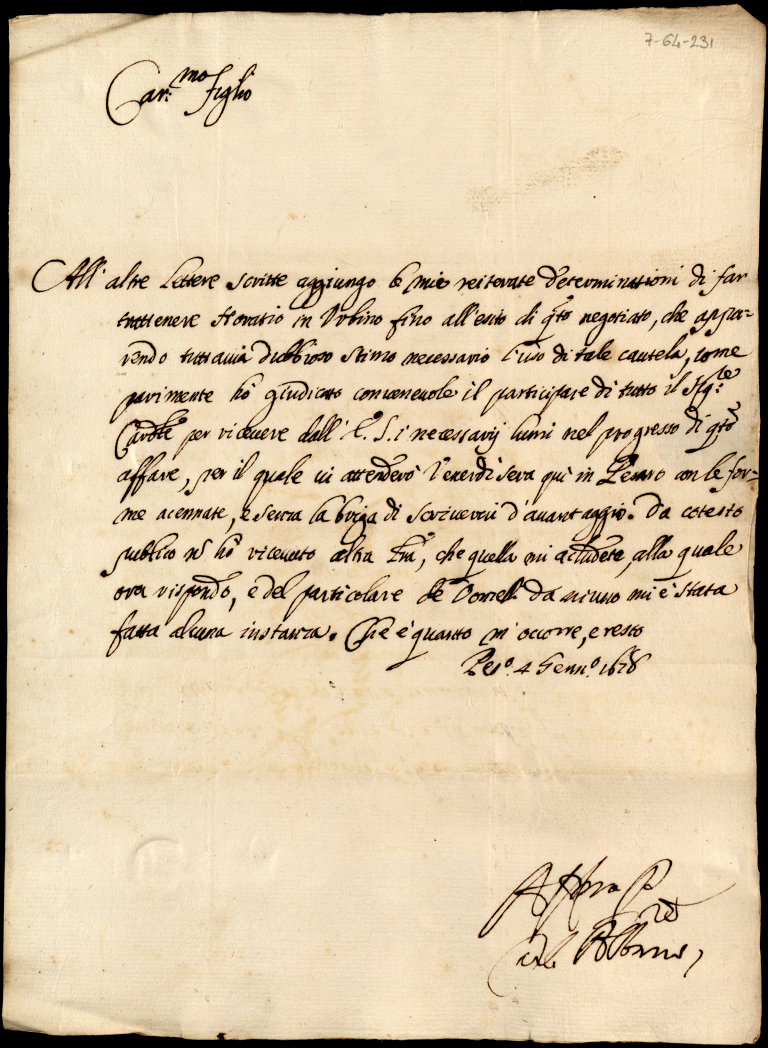 7-64-231
Car.mo figlio
All' altre lettere scritte aggiungo le mie reiterate determinationi di far
trattenere Horatio in Urbino fino all'esito di qsto negotiato, che appa-
rendo tuttauia dubbioso stimo necessario l'uso di tale cautela, come
parimente hò giudicato conueneuole il participare di tutto il Sigr
per riceuere dall' E. S. i necessarij lumi nel progresso di qsto
affare, per il quale ui attenderò Venerdi sera quì in Pesaro con le for-
me acennate, e senza la briga di scriuerui d'auantaggio. Da cotesto
publico nõ hò riceuuto altra lrã, che quella mi acludete, alla quale
ora rispondo, e del particolare de da niuno mi è stata
fatta alcuna instanza. Che è quanto m'occorre, e resto
Peso. 4 Genno. 1678